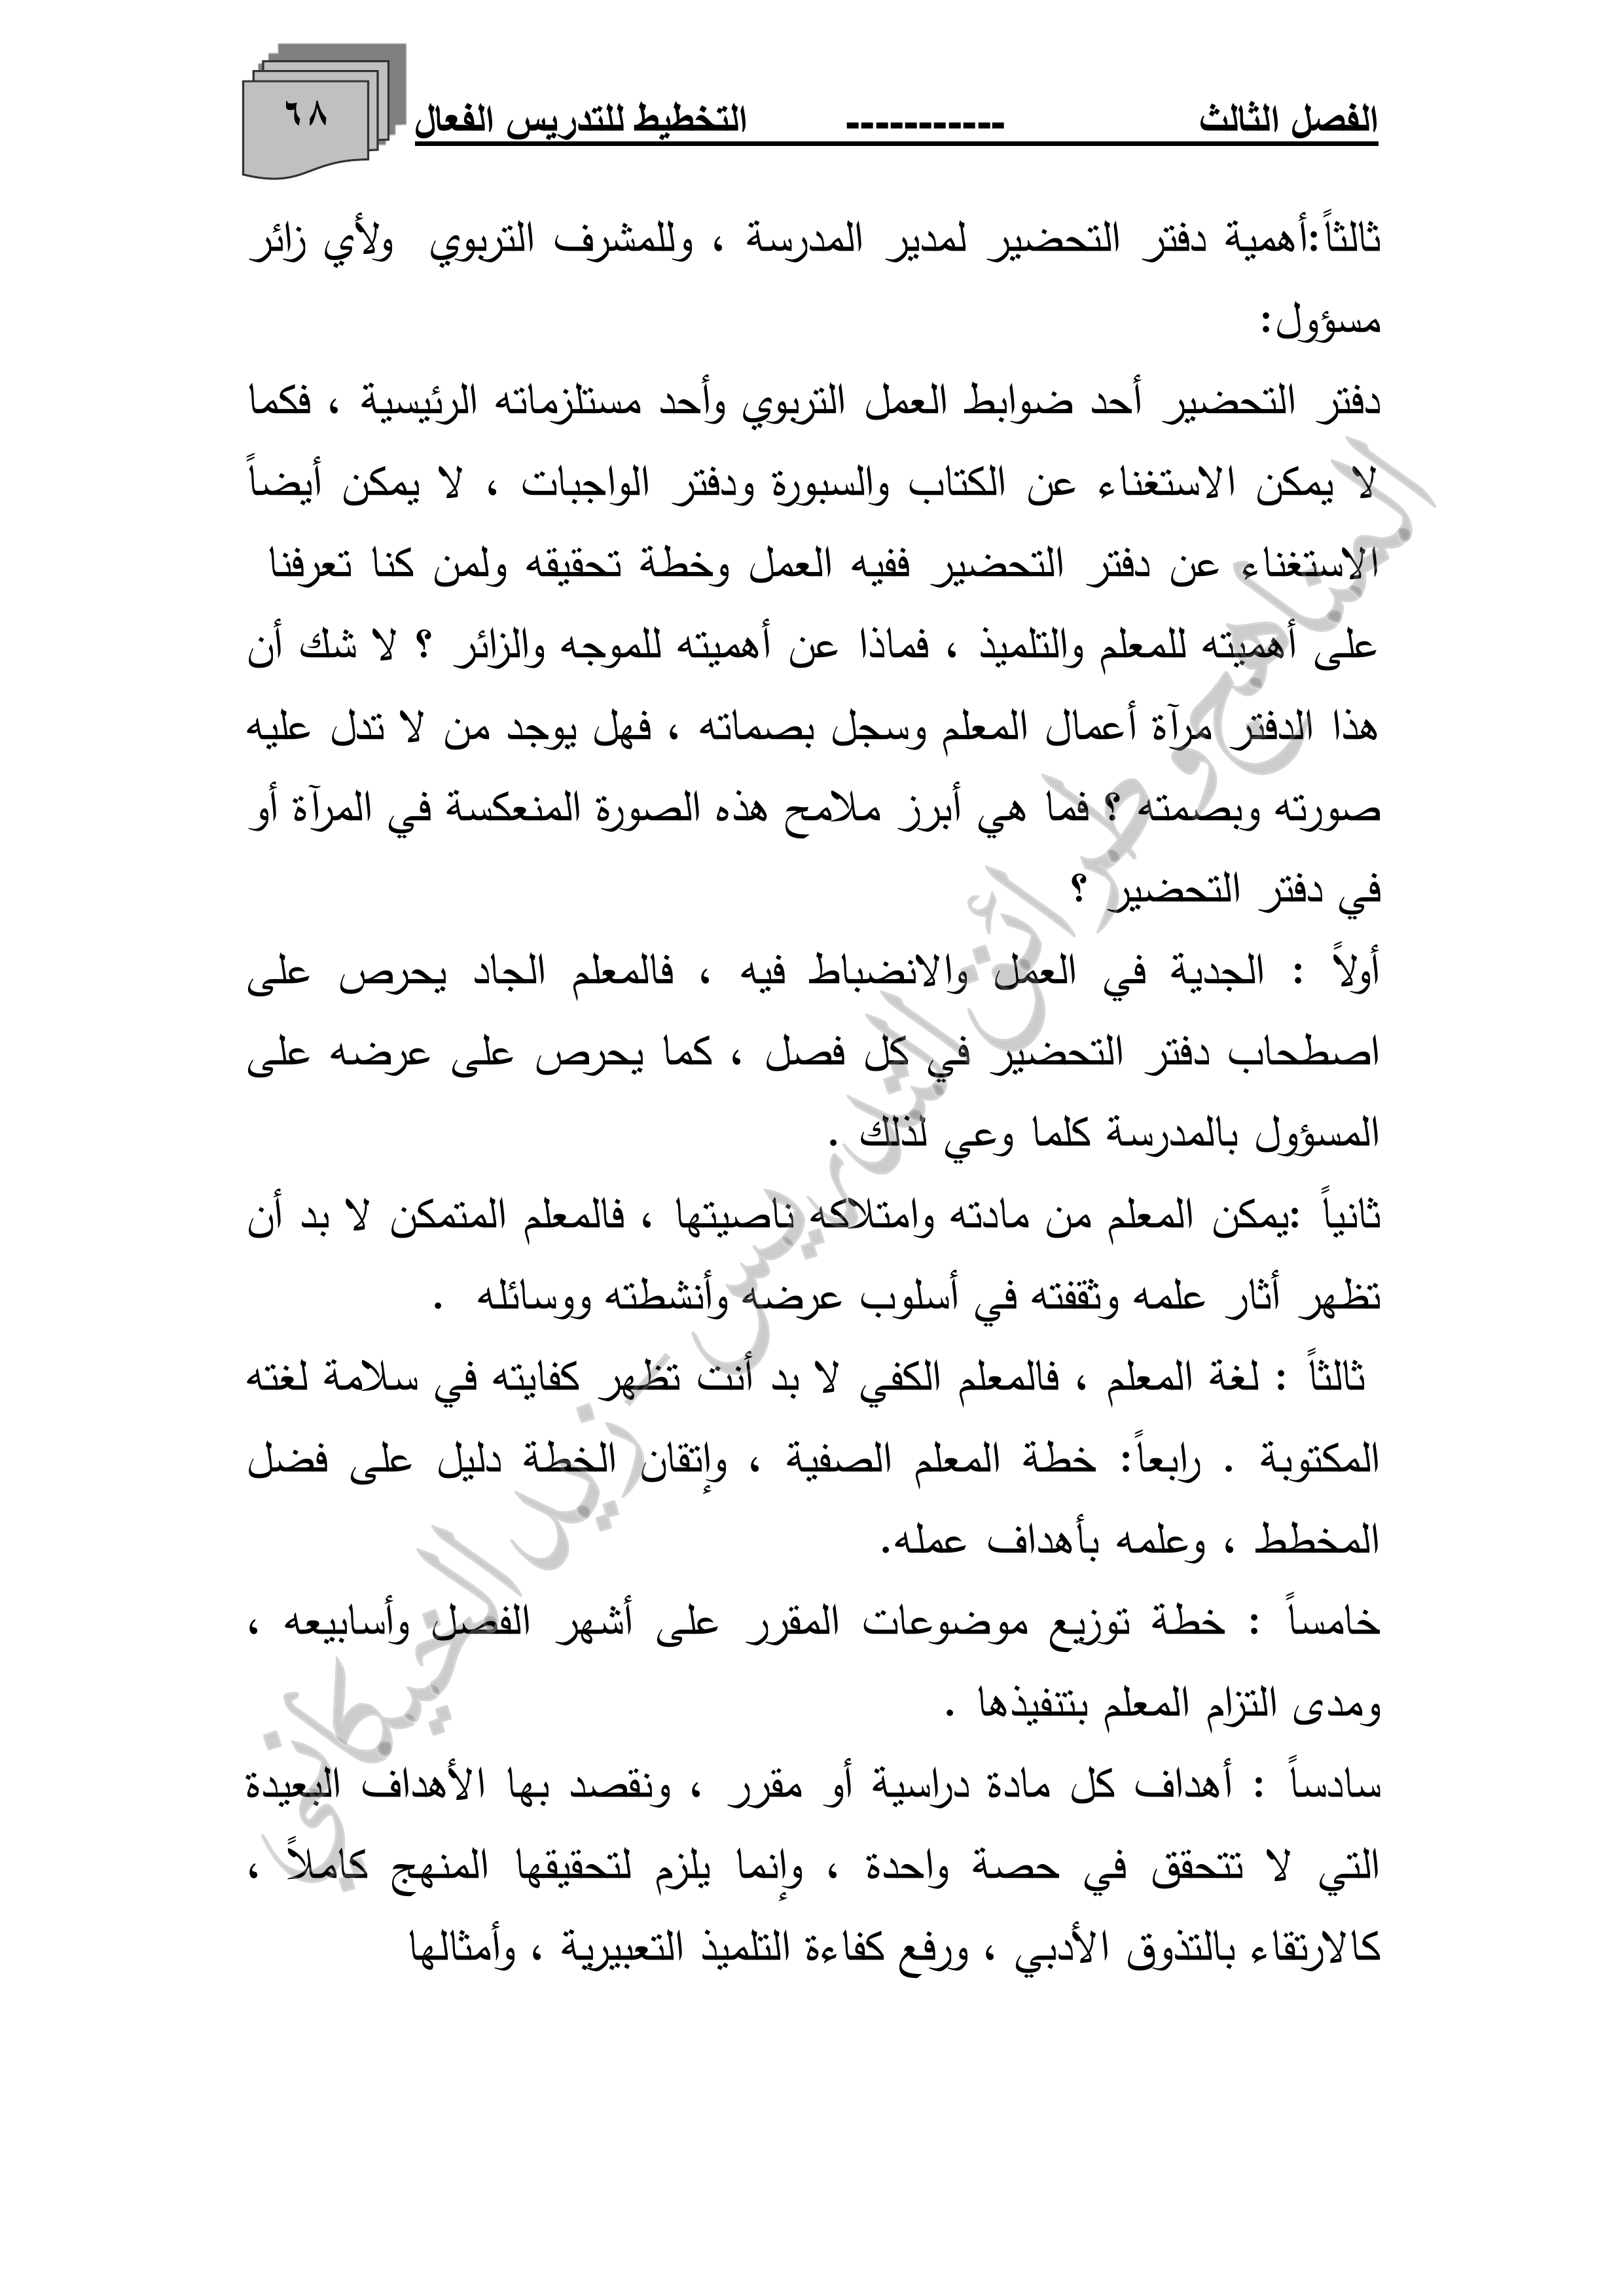 الفصل الثالث ----------- التخطيط للتدريس الفعال ٦٨
ثالثاً:أهمية دفتر التحضير لمدير المدرسة ، وللمشرف التربوي ولأي زائر
مسؤول:
دفتر التحضير أحد ضوابط العمل التربوي وأحد مستلزماته الرئيسية ، فكما
لا يمكن الاستغناء عن الكتاب والسبورة ودفتر الواجبات ، لا يمكن أيضاً
الاستغناء عن دفتر التحضير ففيه العمل وخطة تحقيقه ولمن كنا تعرفنا
على أهميته للمعلم والتلميذ ، فماذا عن أهميته للموجه والزائر ؟ لا شك أن
هذا الدفتر مرآة أعمال المعلم وسجل بصماته ، فهل يوجد من لا تدل عليه
صورته وبصمته ؟ فما هي أبرز ملامح هذه الصورة المنعكسة في المرآة أو
في دفتر التحضير ؟
أولاً : الجدية في العمل والانضباط فيه ، فالمعلم الجاد يحرص على
اصطحاب دفتر التحضير في كل فصل ، كما يحرص على عرضه على
المسؤول بالمدرسة كلما وعي لذلك .
ثانياً :يمكن المعلم من مادته وامتلاكه ناصيتها ، فالمعلم المتمكن لا بد أن
تظهر أثار علمه وثقفته في أسلوب عرضه وأنشطته ووسائله .
ثالثاً : لغة المعلم ، فالمعلم الكفي لا بد أنت تظهر كفايته في سلامة لغته
المكتوبة . رابعاً: خطة المعلم الصفية ، وإتقان الخطة دليل على فضل
المخطط ، وعلمه بأهداف عمله.
خامساً : خطة توزيع موضوعات المقرر على أشهر الفصل وأسابيعه ،
ومدى التزام المعلم بتنفيذها .
سادساً : أهداف كل مادة دراسية أو مقرر ، ونقصد بها الأهداف البعيدة
التي لا تتحقق في حصة واحدة ، وإنما يلزم لتحقيقها المنهج كاملاً ،
كالارتقاء بالتذوق الأدبي ، ورفع كفاءة التلميذ التعبيرية ، وأمثالها
المناهج وطرائق التدريس - زيد الخيكاني